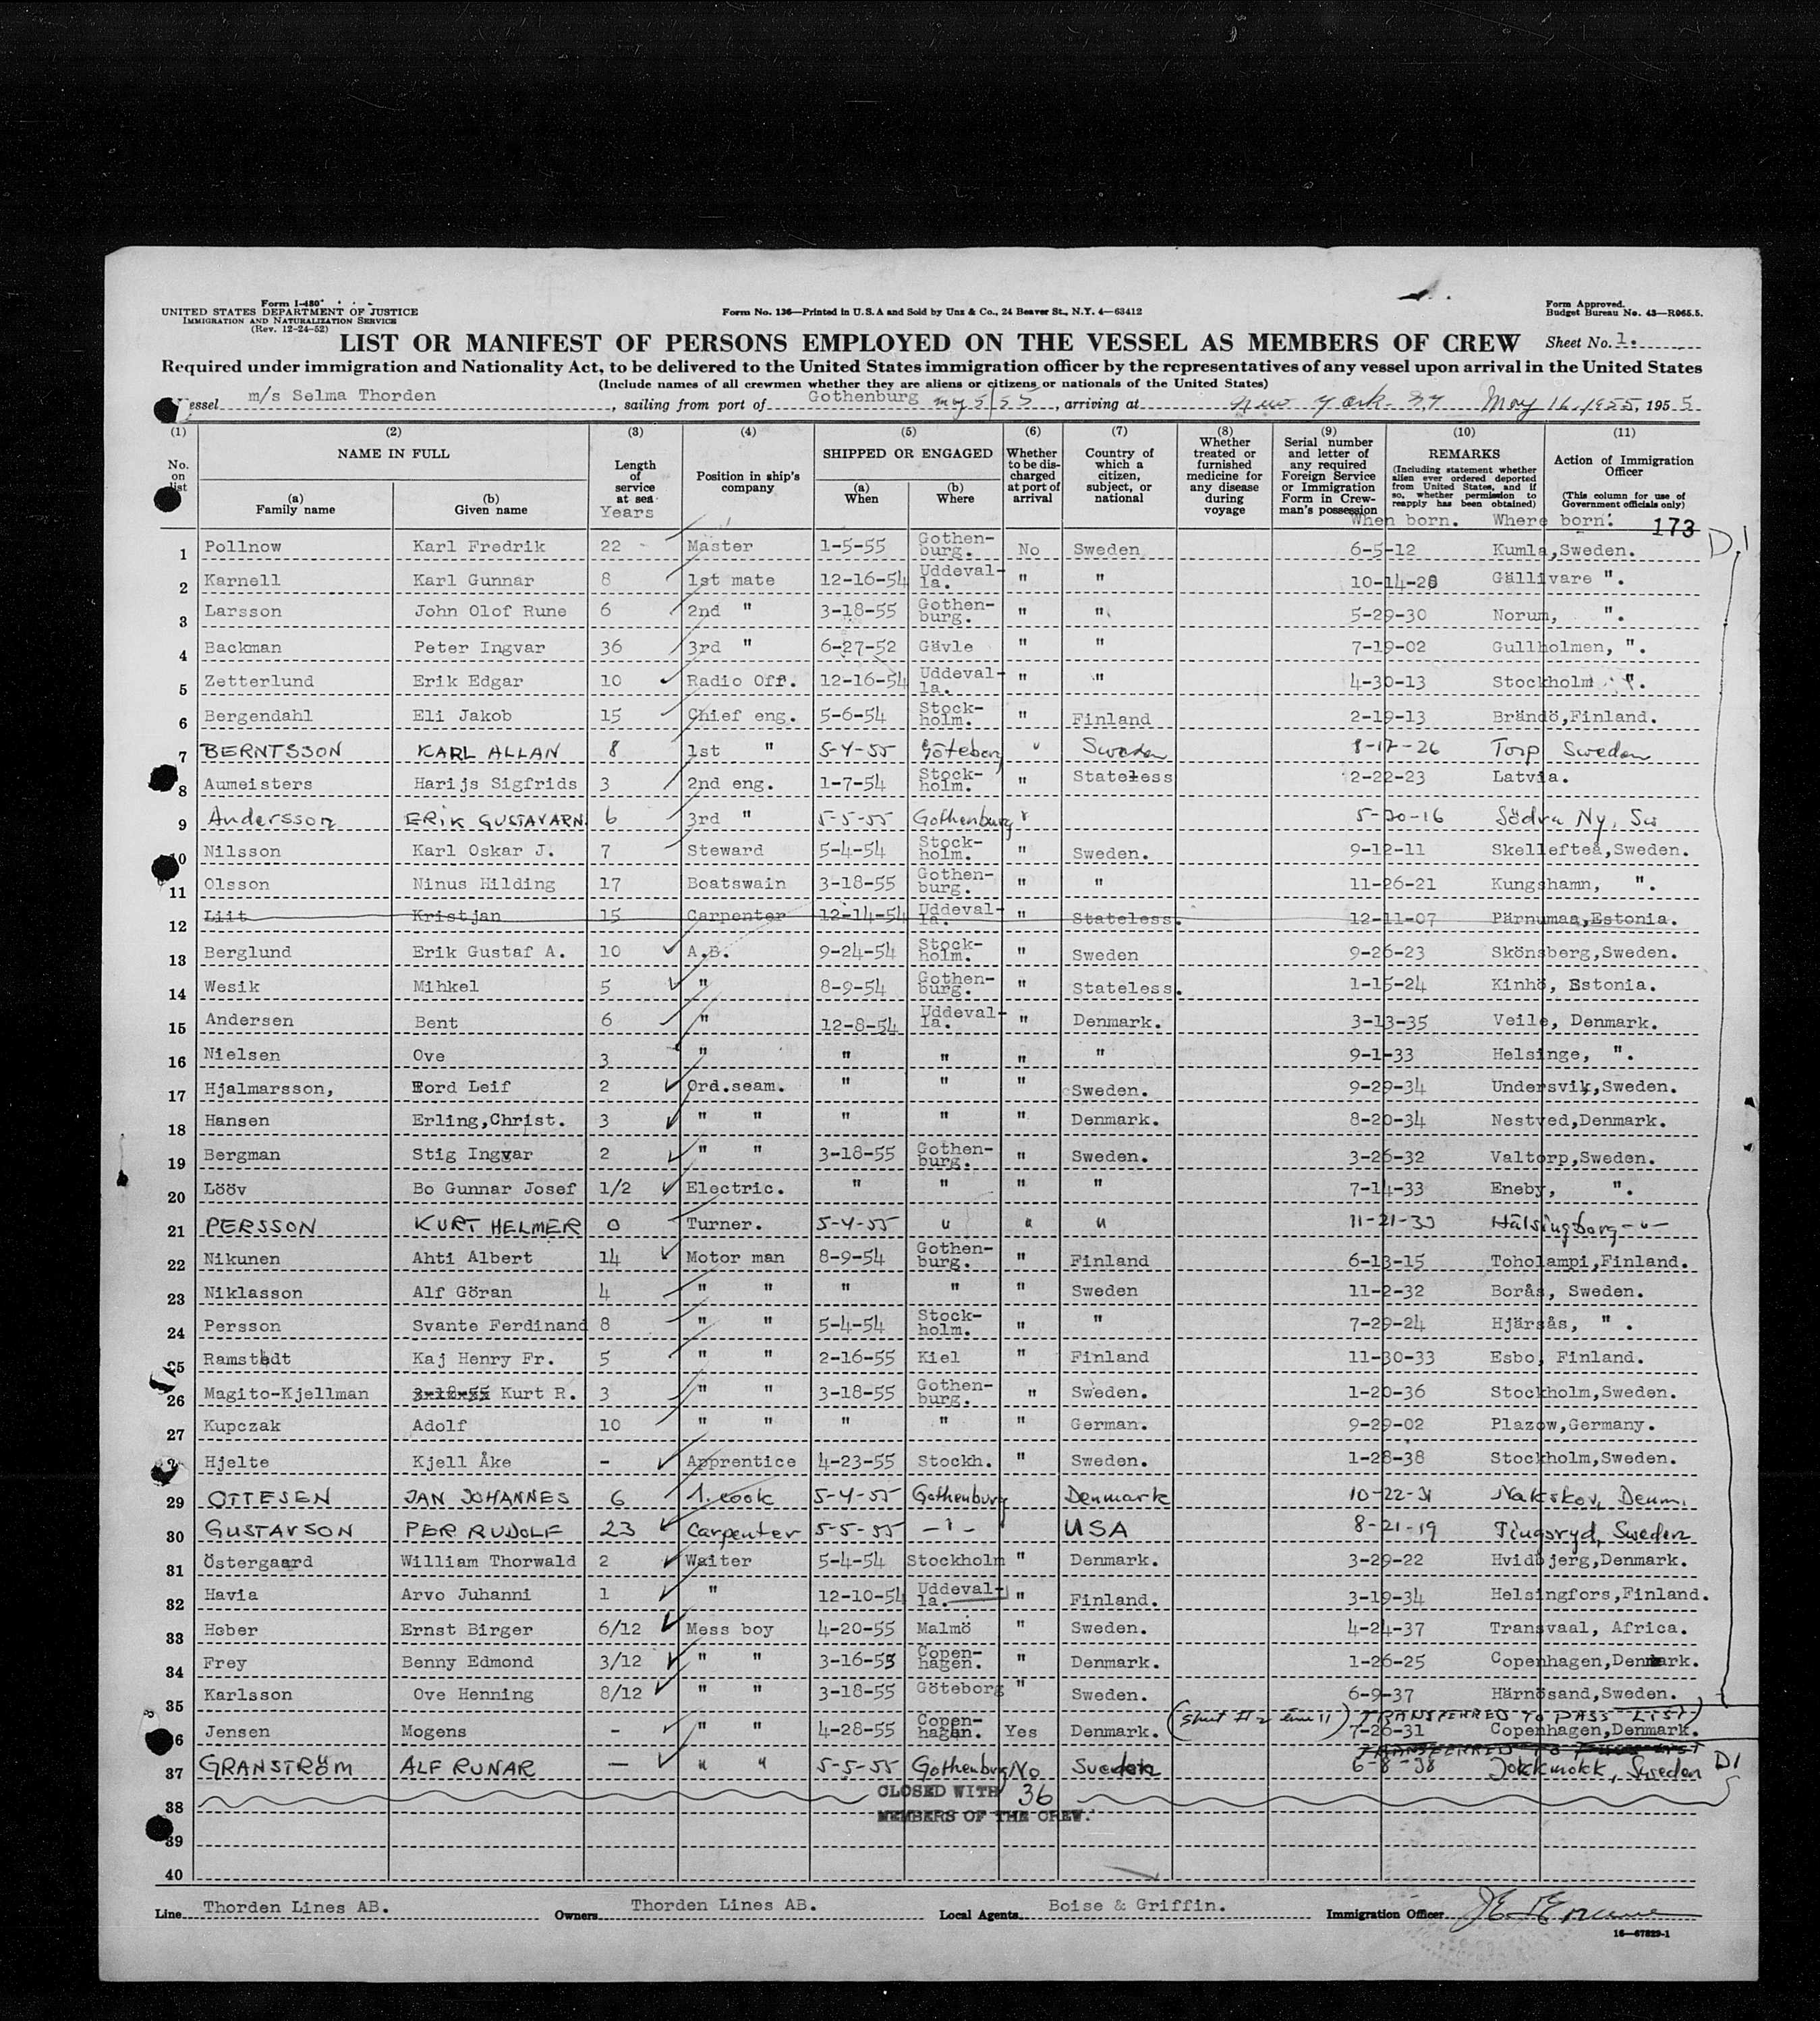 Form I-480
UNITED STATES DEPARTMENT OF JUSTICE
IMMIGRATION AND NATURALIZATION SERVICE
(Rev. 12-24-52)
Form No. 136—Printed in U.S.A and Sold by Unz & Co., 24 Beaver St., N.Y. 4—63412
Form Approved.
Budget Bureau No. 43—R065.5.
LIST OR MANIFEST OF PERSONS EMPLOYED ON THE VESSEL AS MEMBERS OF CREW Sheet No. 1.
Required under immigration and Nationality Act, to be delivered to the United States immigration officer by the representatives of any vessel upon arrival in the United States
(Include names of all crewmen whether they are aliens or citizens or nationals of the United States)
Vessel m/s Selma Thorden, sailing from port of Gothenburg May 5/55, arriving at New York. N.Y May 16, 1955, 1955
(1) (2) (3) (4) (5) (6) (7) (8) (9) (10) (11)
No. on list
NAME IN FULL
(a) Family name
(b) Given name
Length of service at sea
Years
Position in ship's company
SHIPPED OR ENGAGED
(a) When
(b) Where
Whether to be discharged at port of arrival
Country of which a citizen, subject, or national
Whether treated or furnished medicine for any disease during voyage
Serial number and letter of any required Foreign Service or Immigration Form in Crewman's possession
REMARKS
(Including statement whether alien ever ordered deported from United States, and if so, whether permission to reapply has been obtained)
Action of Immigration Officer
(This column for use of Government officials only)
When born. Where born. 173
D.1
1 Pollnow Karl Fredrik 22 Master 1-5-55 Gothen-burg. No Sweden 6-5-12 Kumla,Sweden.
2 Karnell Karl Gunnar 8 1st mate 12-16-54 Uddeval-la. " " 10-14-28 Gällivare ".
3 Larsson John Olof Rune 6 2nd " 3-18-55 Gothen-burg. " " 5-29-30 Norum, ".
4 Backman Peter Ingvar 36 3rd " 6-27-52 Gävle " " 7-19-02 Gullholmen, ".
5 Zetterlund Erik Edgar 10 Radio Off. 12-16-54 Uddeval-la. " " 4-30-13 Stockholm ".
6 Bergendahl Eli Jakob 15 Chief eng. 5-6-54 Stock-holm. " Finland 2-19-13 Brändö,Finland.
7 BERNTSSON KARL ALLAN 8 1st " 5-4-55 Göteborg " Sweden 8-17-26 Torp Sweden
8 Aumeisters Harijs Sigfrids 3 2nd eng. 1-7-54 Stock-holm. " Stateless 2-22-23 Latvia.
9 Andersson ERIK GUSTAV ARN 6 3rd " 5-5-55 Gothenburg " 5-20-16 Södra Ny, Sw
10 Nilsson Karl Oskar J. 7 Steward 5-4-54 Stock-holm. " Sweden. 9-12-11 Skellefteå,Sweden.
11 Olsson Ninus Hilding 17 Boatswain 3-18-55 Gothen-burg. " " 11-26-21 Kungshamn, ".
12 Liit Kristjan 15 Carpenter 12-14-54 Uddeval-la. " Stateless. 12-11-07 Pärnumaa,Estonia.
13 Berglund Erik Gustaf A. 10 A.B. 9-24-54 Stock-holm. " Sweden 9-26-23 Skönsberg,Sweden.
14 Wesik Mihkel 5 " 8-9-54 Gothen-burg. " Stateless. 1-15-24 Kinhö, Estonia.
15 Andersen Bent 6 " 12-8-54 Uddeval-la. " Denmark. 3-13-35 Veile, Denmark.
16 Nielsen Ove 3 " " " " " 9-1-33 Helsinge, ".
17 Hjalmarsson, Bord Leif 2 Ord.seam. " " " Sweden. 9-29-34 Undersvik,Sweden.
18 Hansen Erling,Christ. 3 " " " " " Denmark. 8-20-34 Nestved,Denmark.
19 Bergman Stig Ingvar 2 " " 3-18-55 Gothen-burg. " Sweden. 3-26-32 Valtorp,Sweden.
20 Lööv Bo Gunnar Josef 1/2 Electric. " " " " 7-14-33 Eneby, ".
21 PERSSON KURT HELMER 0 Turner. 5-4-55 " " " 11-21-33 Hälsingborg -"-
22 Nikunen Ahti Albert 14 Motor man 8-9-54 Gothen-burg. " Finland 6-13-15 Toholampi,Finland.
23 Niklasson Alf Göran 4 " " " " " Sweden 11-2-32 Borås, Sweden.
24 Persson Svante Ferdinand 8 " " 5-4-54 Stock-holm. " " 7-29-24 Hjärsås, " .
25 Ramstedt Kaj Henry Fr. 5 " " 2-16-55 Kiel " Finland 11-30-33 Esbo, Finland.
26 Magito-Kjellman 3-18-55 Kurt R. 3 " " 3-18-55 Gothen-burg. " Sweden. 1-20-36 Stockholm,Sweden.
27 Kupczak Adolf 10 " " " " " German. 9-29-02 Plazow,Germany.
28 Hjelte Kjell Åke - Apprentice 4-23-55 Stockh. " Sweden. 1-28-38 Stockholm,Sweden.
29 OTTESEN JAN JOHANNES 6 1. cook 5-4-55 Gothenburg Denmark 10-22-31 Nakskov, Denm.
30 GUSTAVSON PER RUDOLF 23 Carpenter 5-5-55 -"- USA 8-21-19 Tingsryd, Sweden
31 Östergaard William Thorwald 2 Waiter 5-4-54 Stockholm " Denmark. 3-29-22 Hvidbjerg,Denmark.
32 Havia Arvo Juhanni 1 " 12-10-54 Uddeval-la. " Finland. 3-19-34 Helsingfors,Finland.
33 Hober Ernst Birger 6/12 Mess boy 4-20-55 Malmö " Sweden. 4-24-37 Transvaal, Africa.
34 Frey Benny Edmond 3/12 " " 3-16-55 Copen-hagen. " Denmark. 1-26-25 Copenhagen,Denmark.
35 Karlsson Ove Henning 8/12 " " 3-18-55 Göteborg " Sweden. 6-9-37 Härnösand,Sweden.
(Sheet # 2 line 11) TRANSFERRED TO PASS LIST)
36 Jensen Mogens - " " 4-28-55 Copen-hagen. Yes Denmark. 7-26-31 Copenhagen,Denmark.
TRANSFERRED TO PASS LIST
37 GRANSTRÖM ALF RUNAR — " " 5-5-55 Gothenburg No Sweden 6-8-38 Jokkmokk, Sweden D1
38 CLOSED WITH 36
MEMBERS OF THE CREW.
39
40
Line Thorden Lines AB. Owners Thorden Lines AB. Local Agents Boise & Griffin. Immigration Officer
16—67829-1